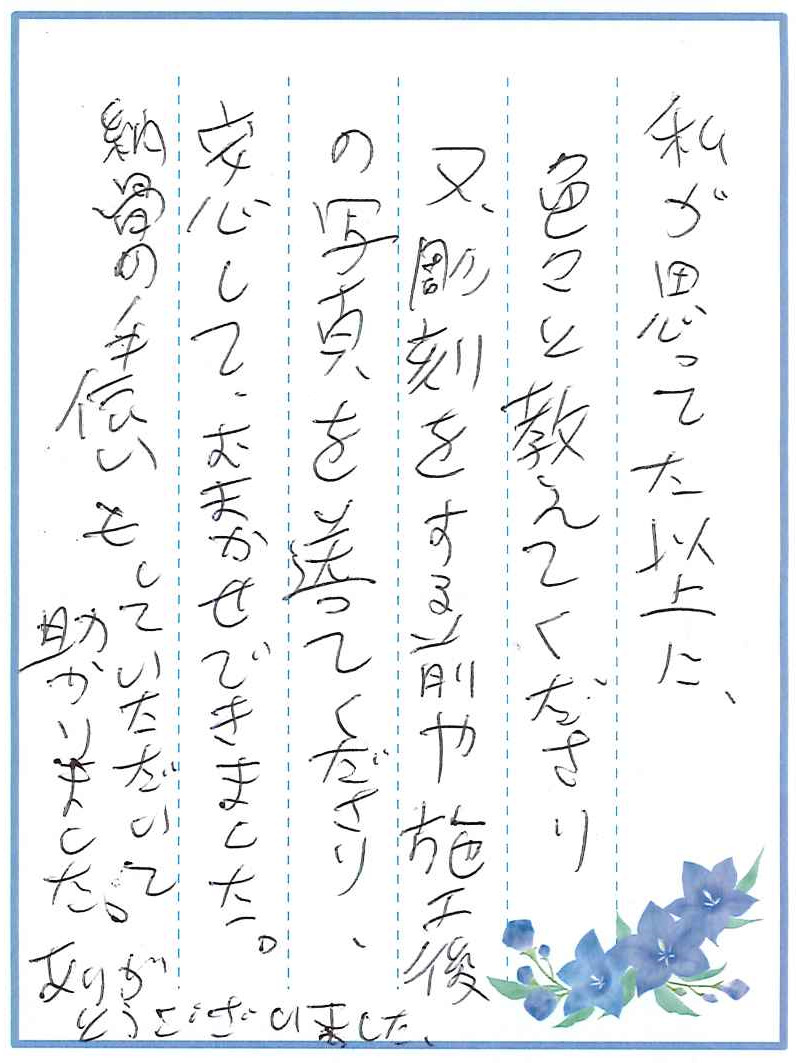 私が思ってた以上に、
色々と教えてくださり
又、彫刻をする前や施工後
の写真を送ってくださり、
安心して、おまかせできました。
納骨の手伝いもしていただいて
助かりました。ありが
とうございました。